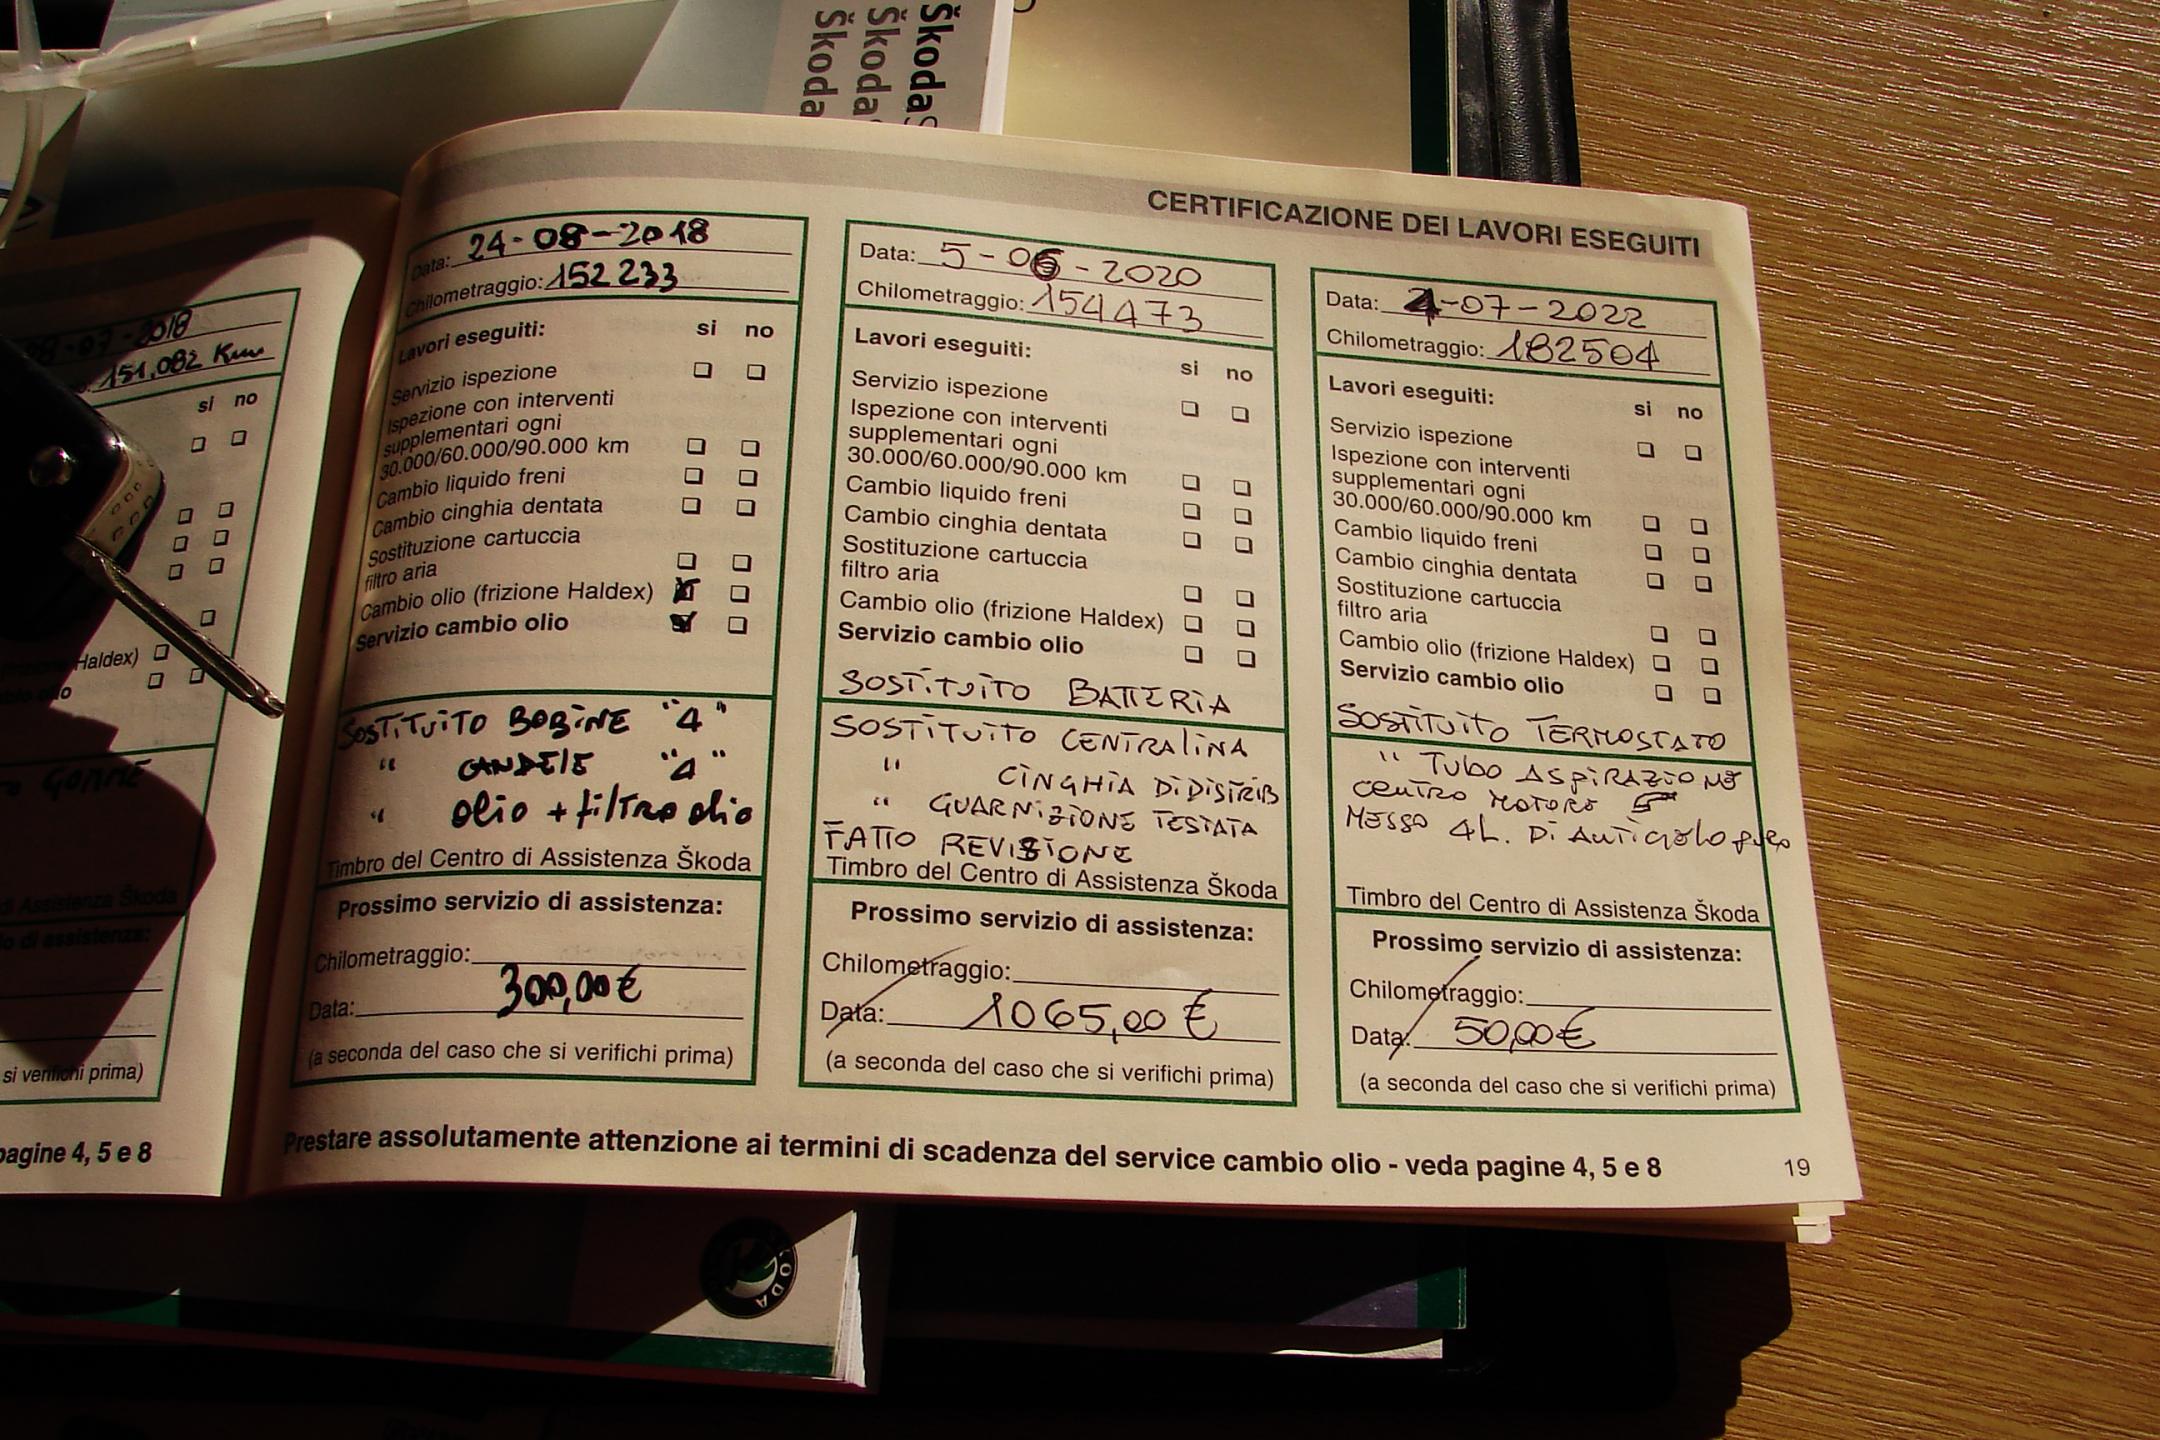 Škoda
Škoda
ŠkodaS
CERTIFICAZIONE DEI LAVORI ESEGUITI
08-07-2018
151,082 Km
si no
Haldex)
GOMME
di Assistenza Škoda
di assistenza:
si verifichi prima)
pagine 4, 5 e 8
Data: 24-08-2018
Chilometraggio: 152233
Lavori eseguiti: si no
Servizio ispezione
Ispezione con interventi
supplementari ogni
30.000/60.000/90.000 km
Cambio liquido freni
Cambio cinghia dentata
Sostituzione cartuccia
filtro aria
Cambio olio (frizione Haldex)
Servizio cambio olio
SOSTITUITO BOBINE "4"
" CANDELE "4"
" olio + filtro olio
Timbro del Centro di Assistenza Škoda
Prossimo servizio di assistenza:
Chilometraggio:
Data: 300,00 €
(a seconda del caso che si verifichi prima)
Data: 5-06-2020
Chilometraggio: 154473
Lavori eseguiti: si no
Servizio ispezione
Ispezione con interventi
supplementari ogni
30.000/60.000/90.000 km
Cambio liquido freni
Cambio cinghia dentata
Sostituzione cartuccia
filtro aria
Cambio olio (frizione Haldex)
Servizio cambio olio
SOSTITUITO BATTERIA
SOSTITUITO CENTRALINA
" CINGHIA DI DISTRIB
" GUARNIZIONE TESTATA
FATTO REVISIONE
Timbro del Centro di Assistenza Škoda
Prossimo servizio di assistenza:
Chilometraggio:
Data: 1065,00 €
(a seconda del caso che si verifichi prima)
Data: 4-07-2022
Chilometraggio: 182504
Lavori eseguiti: si no
Servizio ispezione
Ispezione con interventi
supplementari ogni
30.000/60.000/90.000 km
Cambio liquido freni
Cambio cinghia dentata
Sostituzione cartuccia
filtro aria
Cambio olio (frizione Haldex)
Servizio cambio olio
SOSTITUITO TERMOSTATO
" TUBO ASPIRAZIONE
CENTRO MOTORE
MESSO 4L. DI ANTIGELO
Timbro del Centro di Assistenza Škoda
Prossimo servizio di assistenza:
Chilometraggio:
Data: 50,00 €
(a seconda del caso che si verifichi prima)
Prestare assolutamente attenzione ai termini di scadenza del service cambio olio - veda pagine 4, 5 e 8
19
SKODA